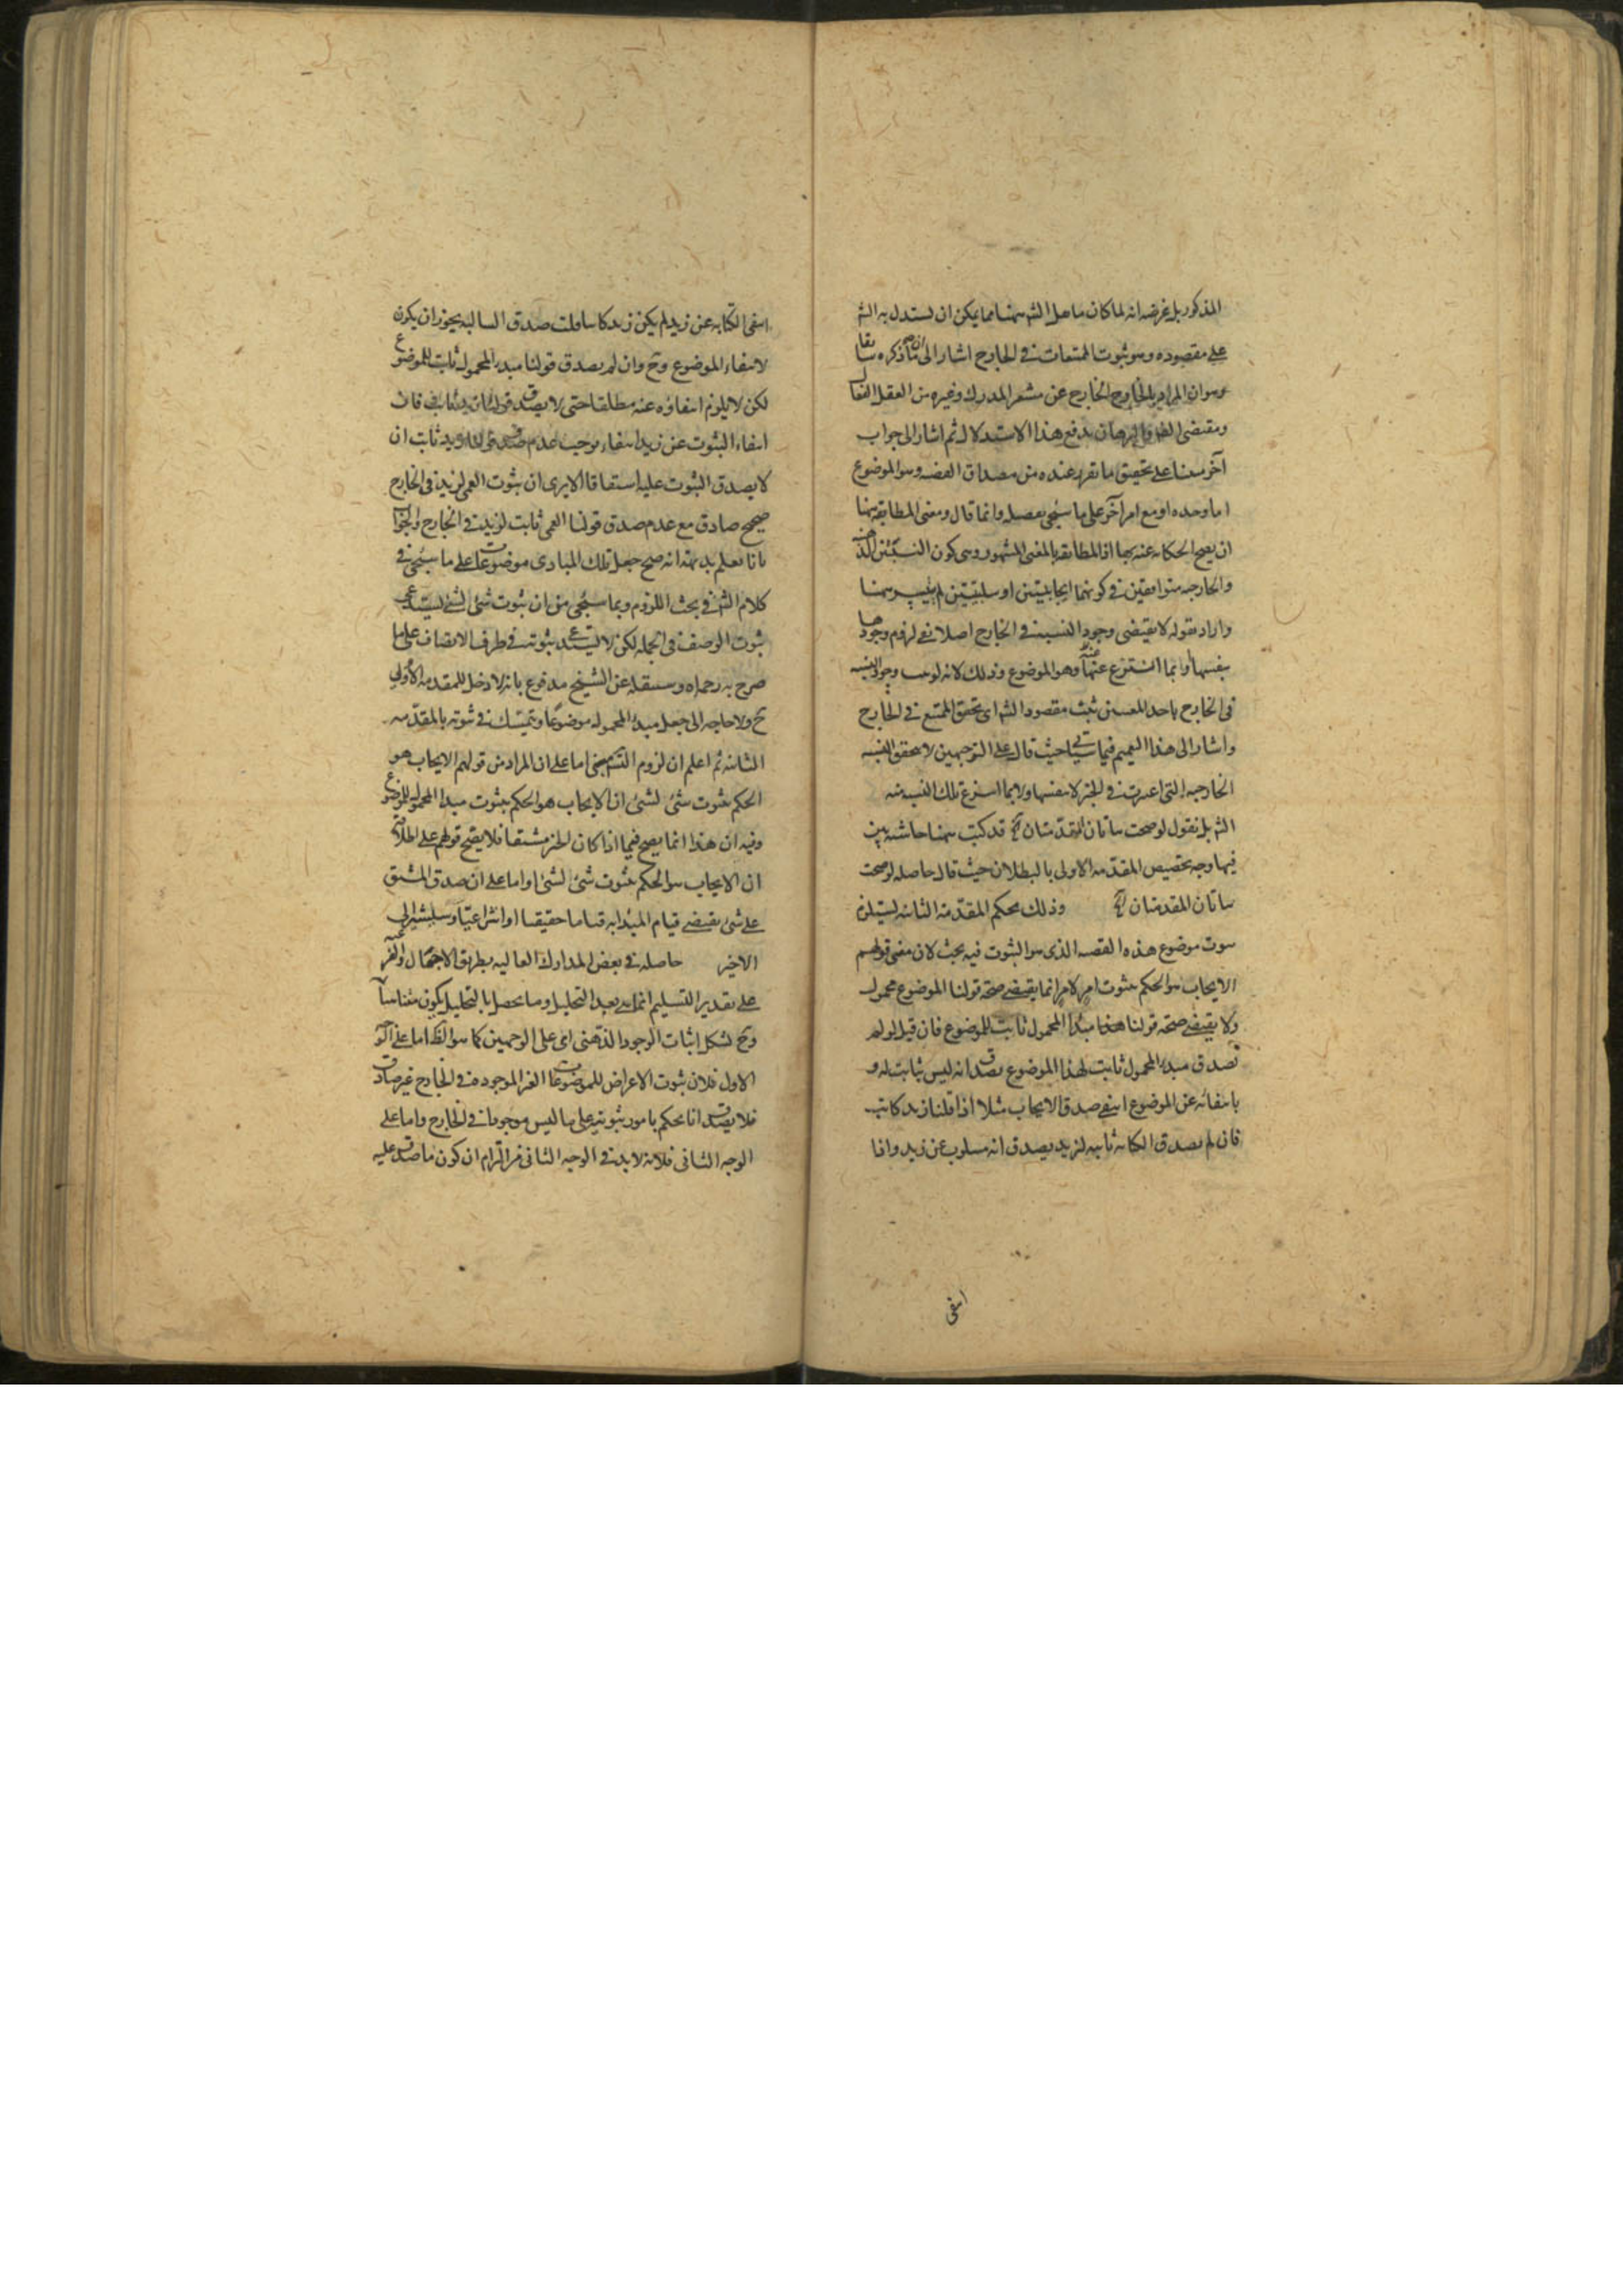 المذكور بل غرضه انه لما كان ما هل الشم ههنا مما يمكن ان يستدل به الشم
على مقصوده وهو ثبوت الممتنعات في الخارج اشار الى ما ذكره سابقا
وهو ان المراد بالخارج الخارج عن مشعر المدرك وغيره من العقل الفعال
ومقتضى البرهان يدفع هذا الاستدلال ثم اشار الى جواب
آخر مبنى على تحقيق ما تقرر عنده من مصداق القضيه وهو الموضوع
اما وحده او مع امر آخر على ما سيجي تفصيله وانما قال ومعنى المطابقة ههنا
ان يصح الحكايه عنه بها اذ المطابقه بالمعنى المشهور وهى كون النسبتين الذهنيه
والخارجيه متوافقين في كونهما ايجابيتين او سلبيتين لم يتيسر ههنا
واراد بقوله لا يقتضى وجود النسبة في الخارج اصلا نفي لزوم وجودها
بنفسها وانما انتزع عنها وهو الموضوع وذلك لانه لو وجب وجود النسبه
في الخارج باحد المعنيين ثبت مقصود الشم اى تحقق الممتنع في الخارج
واشار الى هذا التعميم فيما سيأتي حيث قال على التوجيهين لا تحقق النسبه
الخارجيه التى اعتبرت في الخبر لا بنفسها ولا بما انتزع تلك النسبه منه
الشم بل نقول لو صحت هاتان المقدمتان الخ قد كتب ههنا حاشيه بين
فيها وجه تخصيص المقدمه الاولى بالبطلان حيث قال حاصله لو صحت
هاتان المقدمتان الخ وذلك بحكم المقدمة الثانيه ليستلزم
ثبوت موضوع هذه القضيه الذى هو الثبوت فيه بحث لان معنى قولهم
الايجاب هو الحكم بثبوت امر لامر انما يقتضي صحة قولنا الموضوع محمول
ولا يقتضي صحة قولنا هذا مبدأ المحمول ثابت للموضوع فان قيل لو لم
تصدق مبدء المحمول ثابت لهذا الموضوع يصدق انه ليس ثابت له و
بانتفائه عن الموضوع انتفى صدق الايجاب مثلا اذا قلنا زيد كاتب
فان لم يصدق الكتابه ثابته لزيد يصدق انه مسلوب عن زيد واذا
انتفى
انتفى الكتابه عن زيد لم يكن زيد كاتبا قلت صدق السالبه يجوز ان يكون
لانتفاء الموضوع وح وان لم يصدق قولنا مبدء المحمول ثابت للموضوع
لكن لا يلزم انتفاؤه عنه مطلقا حتى لا يصدق قولنا زيد ثابت فان
انتفاء الثبوت عن زيد انتفاء يوجب عدم صدق قولنا زيد ثابت ان
لا يصدق الثبوت عليه اشتقاقا الا يرى ان ثبوت العمى لزيد في الخارج
صحيح صادق مع عدم صدق قولنا العمى ثابت لزيد في الخارج والجواب
بانا نعلم بديهة انه صح جعل تلك المبادى موضوعات على ما سيجي في
كلام الشم في بحث اللزوم وبما سيجي من ان ثبوت شئ لشئ يستدعى
ثبوت الوصف في الجمله لكن لا يستدعى ثبوته في ظرف الاتصاف على ما
صرح به رحمه الله وسينقله عن الشيخ مدفوع بانه لا دخل للمقدمه الاولى
ح ولا حاجه الى جعل مبدء المحموله موضوعا ويتمسك في ثبوته بالمقدمه
الثانيه ثم اعلم ان لزوم التسم مبنى اما على ان المراد من قولهم الايجاب هو
الحكم بثبوت شئ لشئ ان الايجاب هو الحكم بثبوت مبدا المحمول للموضوع
وفيه ان هذا انما يصح فيما اذا كان الخبر مشتقا فلا يصح قولهم على اطلاقه
ان الايجاب هو الحكم بثبوت شئ لشئ او اما على ان صدق المشتق
على شئ يقتضي قيام المبدا به قياما حقيقيا او انتزاعيا وسيشير الى
الاخير حاصله في بعض المدارك العاليه بطريق الاجمال والفرعيه
على تقدير التسليم انما هي بعد التحليل وما يحصل بالتحليل يكون متناهيا
وح لشكل اثبات الوجود الذهنى اى على الوجهين كما هو الظ اما على الوجه
الاول فلان ثبوت الاعراض للموضوعات الغير الموجوده في الخارج غير صادق
فلا يصدق انا نحكم بامور ثبوتيه على ما ليس موجودا في الخارج واما على
الوجه الثانى فلانه لا بد في الوجه الثانى من التزام ان كون ما صدق عليه